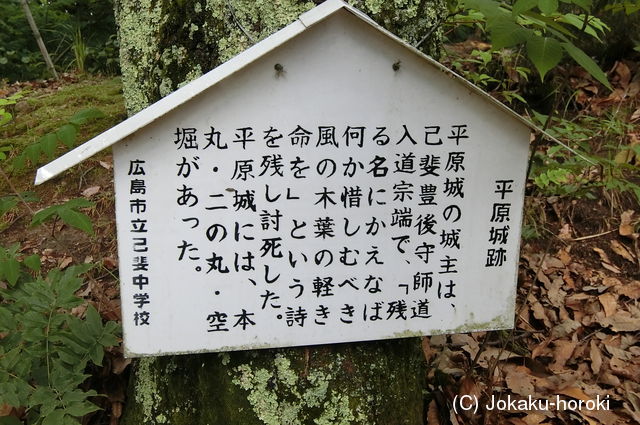 平原城跡
平原城の城主は、
己斐豊後守師道
入道宗端で、「残
る名にかえなば
何か惜しむべき
風の木葉の軽き
命を」という詩
を残し討死した。
平原城には、本
丸・二の丸・空
堀があった。
広島市立己斐中学校
(C)Jokaku-horoki